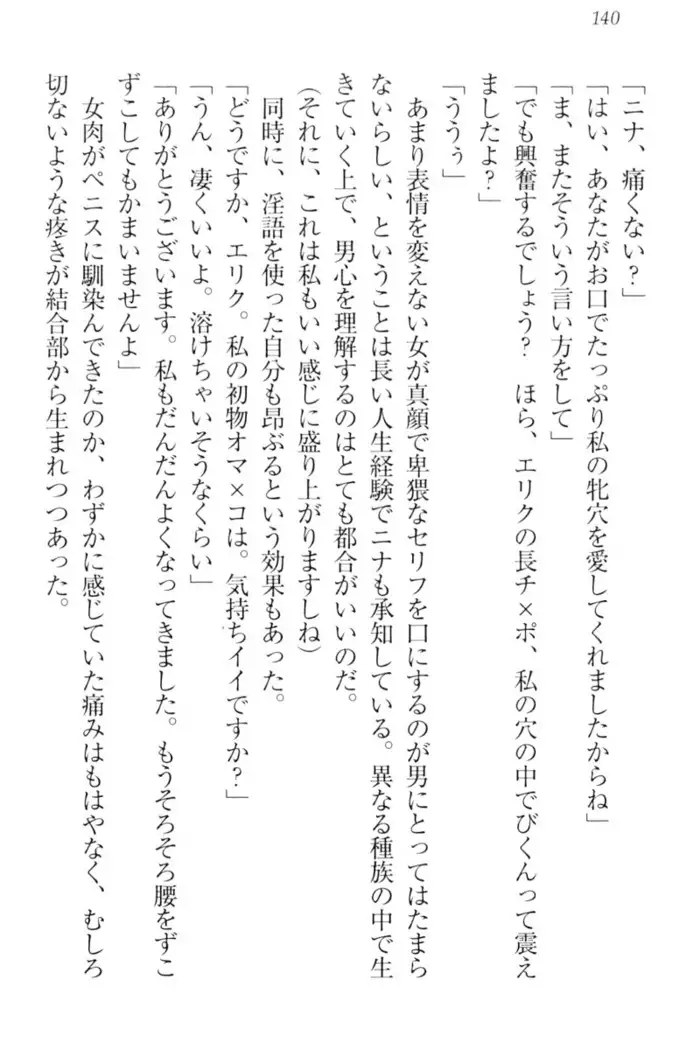 140
「ニナ、痛くない？」
「はい、あなたがお口でたっぷり私の牝穴を愛してくれましたからね」
「ま、またそういう言い方をして」
「でも興奮するでしょう？　ほら、エリクの長チ×ポ、私の穴の中でびくんって震え
ましたよ？」
「ううぅ」
　あまり表情を変えない女が真顔で卑猥なセリフを口にするのが男にとってはたまら
ないらしい、ということは長い人生経験でニナも承知している。異なる種族の中で生
きていく上で、男心を理解するのはとても都合がいいのだ。
（それに、これは私もいい感じに盛り上がりますしね）
　同時に、淫語を使った自分も昂ぶるという効果もあった。
「どうですか、エリク。私の初物オマ×コは。気持ちイイですか？」
「うん、凄くいいよ。溶けちゃいそうなくらい」
「ありがとうございます。私もだんだんよくなってきました。もうそろそろ腰をずこ
ずこしてもかまいませんよ」
　女肉がペニスに馴染んできたのか、わずかに感じていた痛みはもはやなく、むしろ
切ないような疼きが結合部から生まれつつあった。